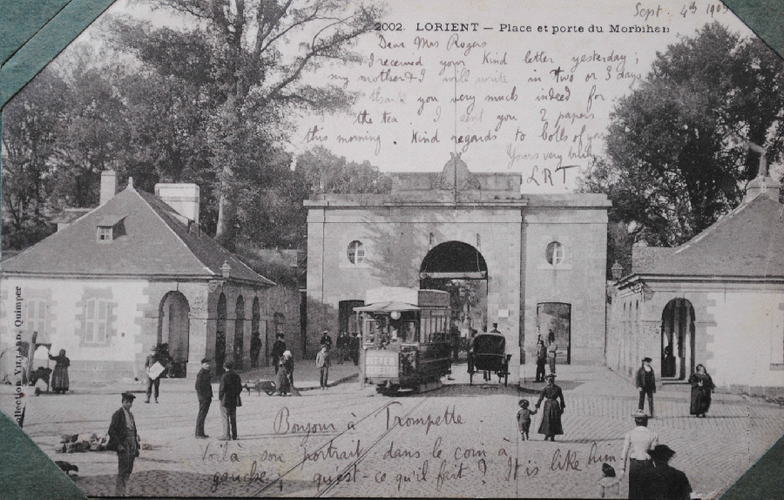 2002. LORIENT — Place et porte du Morbihan
Sept. 4th
Dear Mrs Rogers
I received your kind letter yesterday;
my mother & I will write in two or 3 days
thank you very much indeed for
the tea. I sent you 2 papers
this morning. Kind regards to both of you
Yours very
LRT
Collection VILLARD, Quimper
Bonjour à Trompette
Voilà son portrait dans le corn à
gauche; qu'est-ce qu'il fait? It is like him